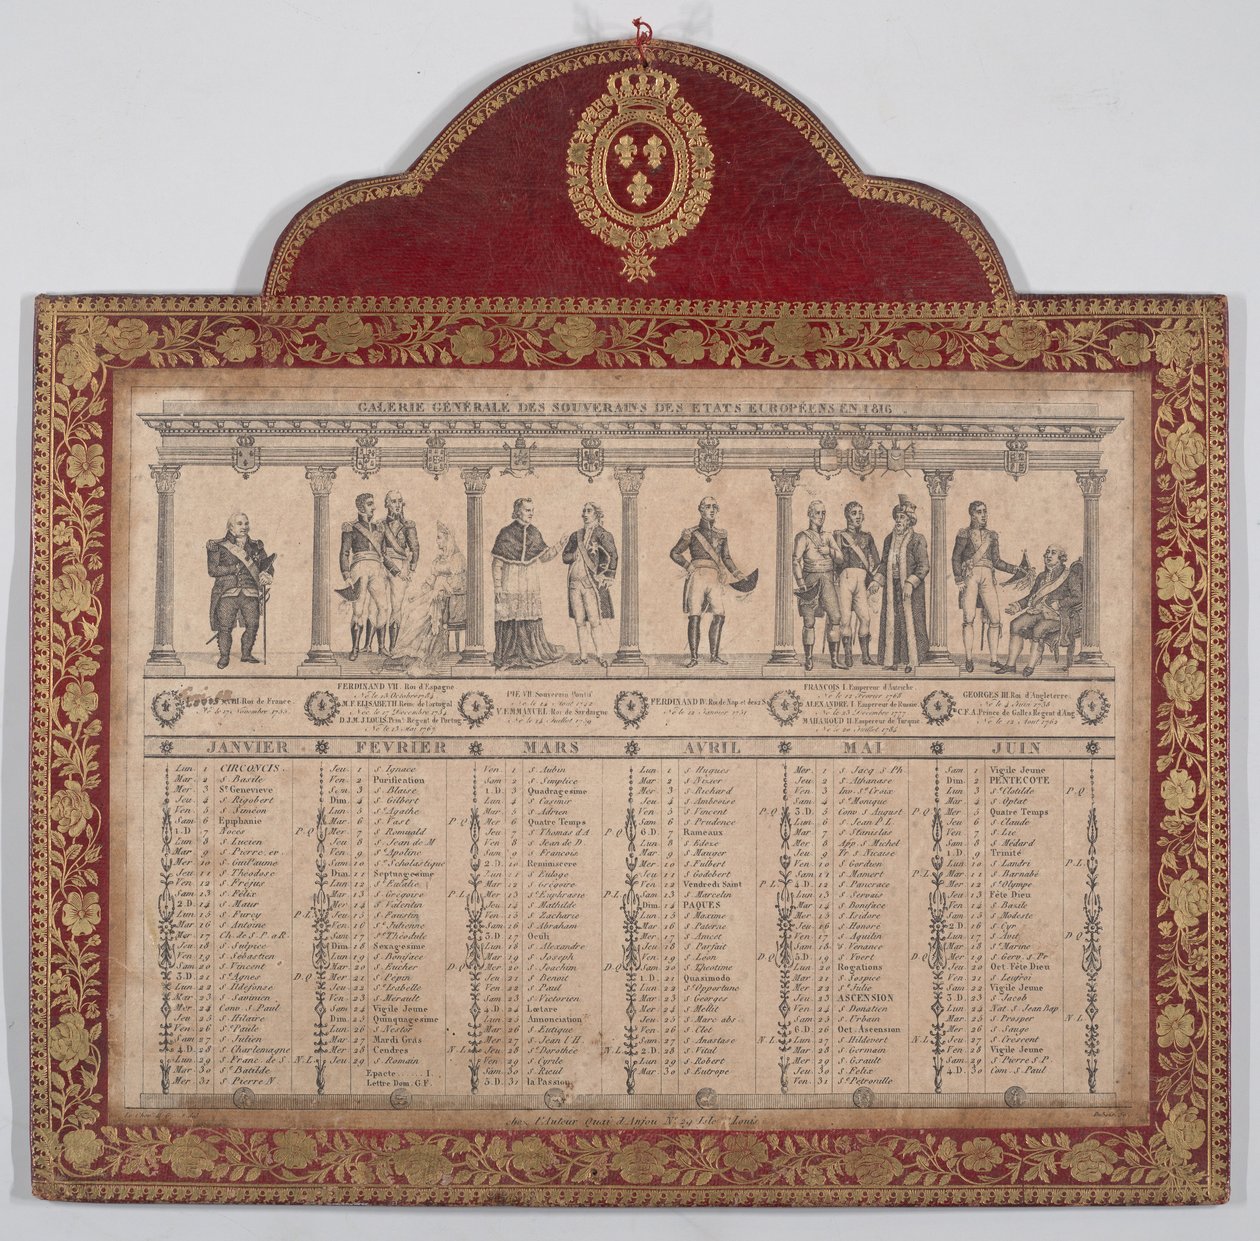 GALERIE GÉNÉRALE DES SOUVERAINS DES ETATS EUROPÉENS EN 1816.
XVIII Roi de France
Né le 17 Novembre 1755
FERDINAND VII. Roi d'Espagne
Né le 13 Octobre 1784
M.F. ELISABETH Reine de Portugal
Né le 17 Décembre 1734
D.J.M.J. LOUIS. Prin. Régent de Portug.
Né le 13 Mai 1767
PIE VII Souverain Pontif
Né le 14 Aout 1742
V. EMMANUEL Roi de Sardaigne
Né le 24 Juillet 1759
FERDINAND IV. Roi de Nap. et deux S.
Né le 12 Janvier 1751
FRANÇOIS I. Empereur d'Autriche
Né le 12 Février 1768
ALEXANDRE I. Empereur de Russie
Né le 23 Décembre 1777
MAHAMOUD II. Empereur de Turquie
Né le 20 Juillet 1785
GEORGES III. Roi d'Angleterre
Né le 4 Juin 1738
G.F.A. Prince de Galles Régent d'Ang.
Né le 12 Aout 1762
JANVIER
Lun. 1 CIRCONCIS.
Mar. 2 S. Basile
Mer. 3 Ste Genevieve
Jeu. 4 S. Rigobert
Ven. 5 S. Siméon
Sam. 6 Epiphanie
1.D. 7 Noces P.Q.
Lun. 8 S. Lucien
Mar. 9 S. Pierre. ev.
Mer. 10 S. Guillaume
Jeu. 11 S. Théodose
Ven. 12 S. Fréjus
Sam. 13 S. Félix
2.D. 14 S. Maur P.L.
Lun. 15 S. Furcy
Mar. 16 S. Antoine
Mer. 17 Ch. de S. P. a R.
Jeu. 18 S. Sulpice
Ven. 19 S. Sébastien
Sam. 20 S. Vincent
3.D. 21 S. Agnès D.Q.
Lun. 22 S. Ildefonse
Mar. 23 S. Savinien
Mer. 24 Conv. S. Paul
Jeu. 25 S. Hilaire
Ven. 26 Ste Paule
Sam. 27 S. Julien
4.D. 28 S. Charlemagne
Lun. 29 S. Franc. de S. N.L.
Mar. 30 Ste Batilde
Mer. 31 S. Pierre N.
FEVRIER
Jeu. 1 S. Ignace
Ven. 2 Purification
Sam. 3 S. Blaise
Dim. 4 S. Gilbert
Lun. 5 Ste Agathe
Mar. 6 S. Vast P.Q.
Mer. 7 S. Romuald
Jeu. 8 S. Jean de M.
Ven. 9 Ste Apoline
Sam. 10 Ste Scholastique
Dim. 11 Septuagesime
Lun. 12 Ste Eulalie
Mar. 13 S. Grégoire P.L.
Mer. 14 S. Valentin
Jeu. 15 S. Faustin
Ven. 16 Ste Julienne
Sam. 17 S. Théodule
Dim. 18 Sexagesime
Lun. 19 S. Boniface
Mar. 20 S. Eucher D.Q.
Mer. 21 S. Pépin
Jeu. 22 Ste Isabelle
Ven. 23 S. Mérault
Sam. 24 Vigile Jeune
Dim. 25 Quinquagesime
Lun. 26 S. Nestor
Mar. 27 Mardi Gras
Mer. 28 Cendres N.L.
Jeu. 29 S. Romain
Epacte...... I
Lettre Dom. G.F.
MARS
Ven. 1 S. Aubin
Sam. 2 S. Simplice
1.D. 3 Quadragesime
Lun. 4 S. Casimir
Mar. 5 S. Adrien
Mer. 6 Quatre Temps
Jeu. 7 S. Thomas d'A. P.Q.
Ven. 8 S. Jean de D.
Sam. 9 S. François
2.D. 10 Reminiscere
Lun. 11 S. Euloge
Mar. 12 S. Grégoire
Mer. 13 Ste Euphrasie P.L.
Jeu. 14 S. Mathilde
Ven. 15 S. Zacharie
Sam. 16 S. Abraham
3.D. 17 Oculi
Lun. 18 S. Alexandre
Mar. 19 S. Joseph
Mer. 20 S. Joachim D.Q.
Jeu. 21 S. Benoit
Ven. 22 S. Paul
Sam. 23 S. Victorien
4.D. 24 Lætare
Lun. 25 Annonciation
Mar. 26 S. Eutique
Mer. 27 S. Jean l'H.
Jeu. 28 Ste Dorothée N.L.
Ven. 29 S. Cyrile
Sam. 30 S. Rieul
5.D. 31 la Passion
AVRIL
Lun. 1 S. Hugues
Mar. 2 S. Nisier
Mer. 3 S. Richard
Jeu. 4 S. Ambroise
Ven. 5 S. Vincent P.Q.
Sam. 6 S. Prudence
6.D. 7 Rameaux
Lun. 8 S. Edèse
Mar. 9 S. Mauger
Mer. 10 S. Fulbert
Jeu. 11 S. Godebert
Ven. 12 Vendredi Saint P.L.
Sam. 13 S. Marcelin
Dim. 14 PAQUES
Lun. 15 S. Maxime
Mar. 16 S. Paterne
Mer. 17 S. Anicet
Jeu. 18 S. Parfait
Ven. 19 S. Léon D.Q.
Sam. 20 S. Theotime
1.D. 21 Quasimodo
Lun. 22 Ste Opportune
Mar. 23 S. Georges
Mer. 24 S. Mellit
Jeu. 25 S. Marc abs.
Ven. 26 S. Clet
Sam. 27 S. Anastase N.L.
2.D. 28 S. Vital
Lun. 29 S. Robert
Mar. 30 S. Eutrope
MAI
Mer. 1 S. Jacq. S. Ph.
Jeu. 2 S. Athanase
Ven. 3 Inv. Ste Croix
Sam. 4 Ste Monique
3.D. 5 Conv. S. August. P.Q.
Lun. 6 S. Jean P.L.
Mar. 7 S. Stanislas
Mer. 8 App. S. Michel
Jeu. 9 Tr. S. Nicaise
Ven. 10 S. Gordien
Sam. 11 S. Mamert P.L.
4.D. 12 S. Pancrace
Lun. 13 S. Servais
Mar. 14 S. Boniface
Mer. 15 S. Isidore
Jeu. 16 S. Honoré
Ven. 17 S. Aquilin
Sam. 18 S. Venance
5.D. 19 S. Yvert D.Q.
Lun. 20 Rogations
Mar. 21 S. Hospice
Mer. 22 Ste Julie
Jeu. 23 ASCENSION
Ven. 24 S. Donatien
Sam. 25 S. Urbain
6.D. 26 Oct. Ascension
Lun. 27 S. Hildevert N.L.
Mar. 28 S. Germain
Mer. 29 S. Grault
Jeu. 30 S. Felix
Ven. 31 Ste Pétronille
JUIN
Sam. 1 Vigile Jeune
Dim. 2 PENTECOTE
Lun. 3 Ste Clotilde P.Q.
Mar. 4 S. Optat
Mer. 5 Quatre Temps
Jeu. 6 S. Claude
Ven. 7 S. Lié
Sam. 8 S. Médard
1.D. 9 Trinité
Lun. 10 S. Landri P.L.
Mar. 11 S. Barnabé
Mer. 12 Ste Olympe
Jeu. 13 Fête Dieu
Ven. 14 S. Bazile
Sam. 15 S. Modeste
2.D. 16 S. Cyr
Lun. 17 S. Avit D.Q.
Mar. 18 Ste Marine
Mer. 19 S. Gerv. S. Pr.
Jeu. 20 Oct. Fête Dieu
Ven. 21 S. Leufroi
Sam. 22 Vigile Jeune
3.D. 23 S. Jacob
Lun. 24 Nat. S. Jean Bap.
Mar. 25 S. Prosper N.L.
Mer. 26 S. Sauge
Jeu. 27 S. Crescent
Ven. 28 Vigile Jeune
Sam. 29 S. Pierre S. P.
4.D. 30 Com. S. Paul
chez l'Auteur Quai d'Anjou No. 29 Isle St Louis